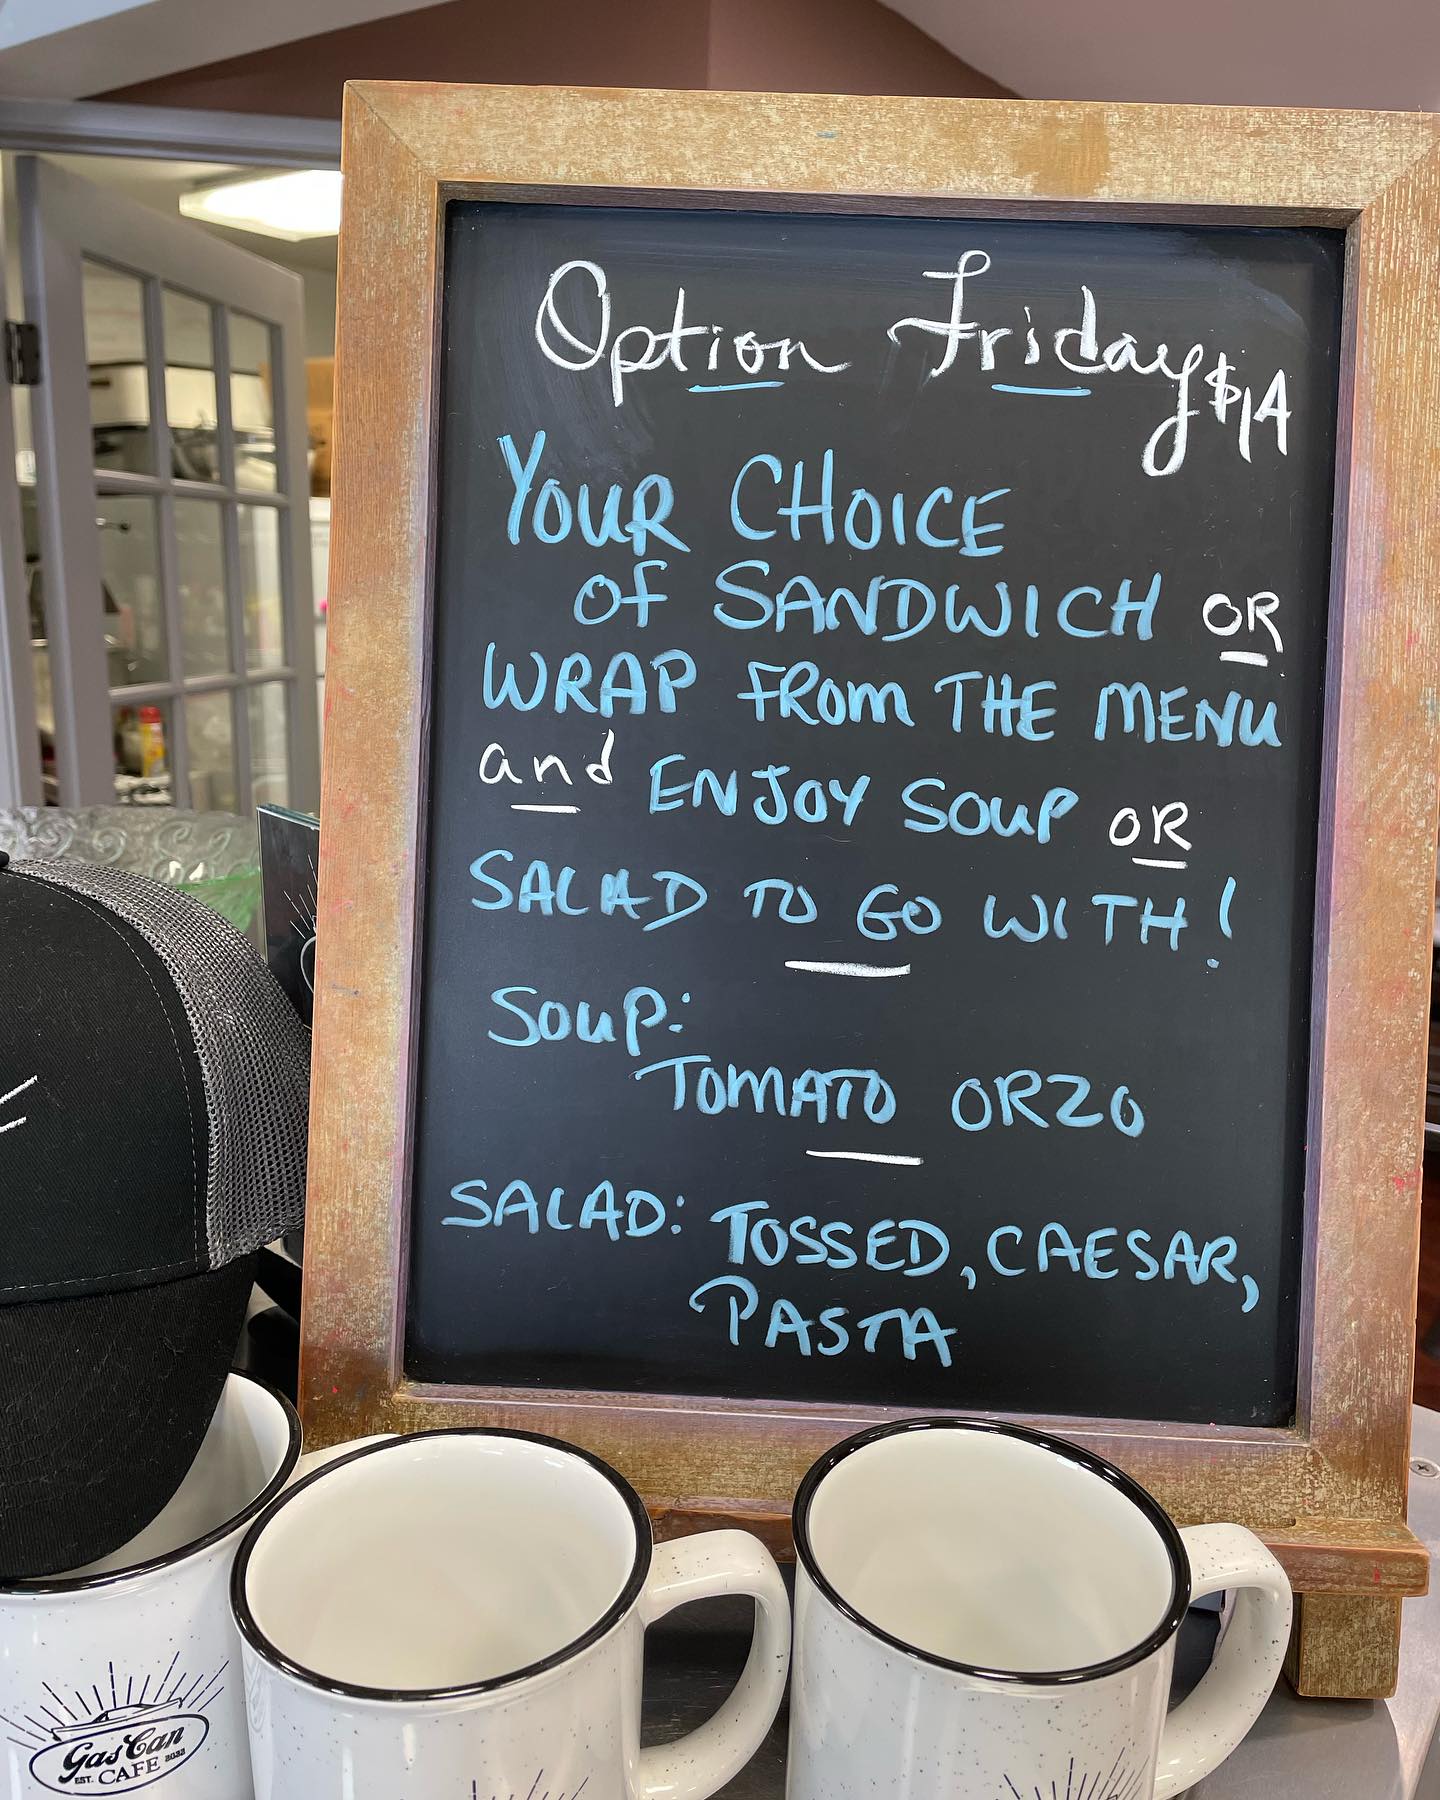 Option Friday $14
YOUR CHOICE
OF SANDWICH OR
WRAP FROM THE MENU
and ENJOY SOUP OR
SALAD TO GO WITH!
SOUP:
TOMATO ORZO
SALAD: TOSSED, CAESAR,
PASTA
GasCan
EST. CAFE 2022